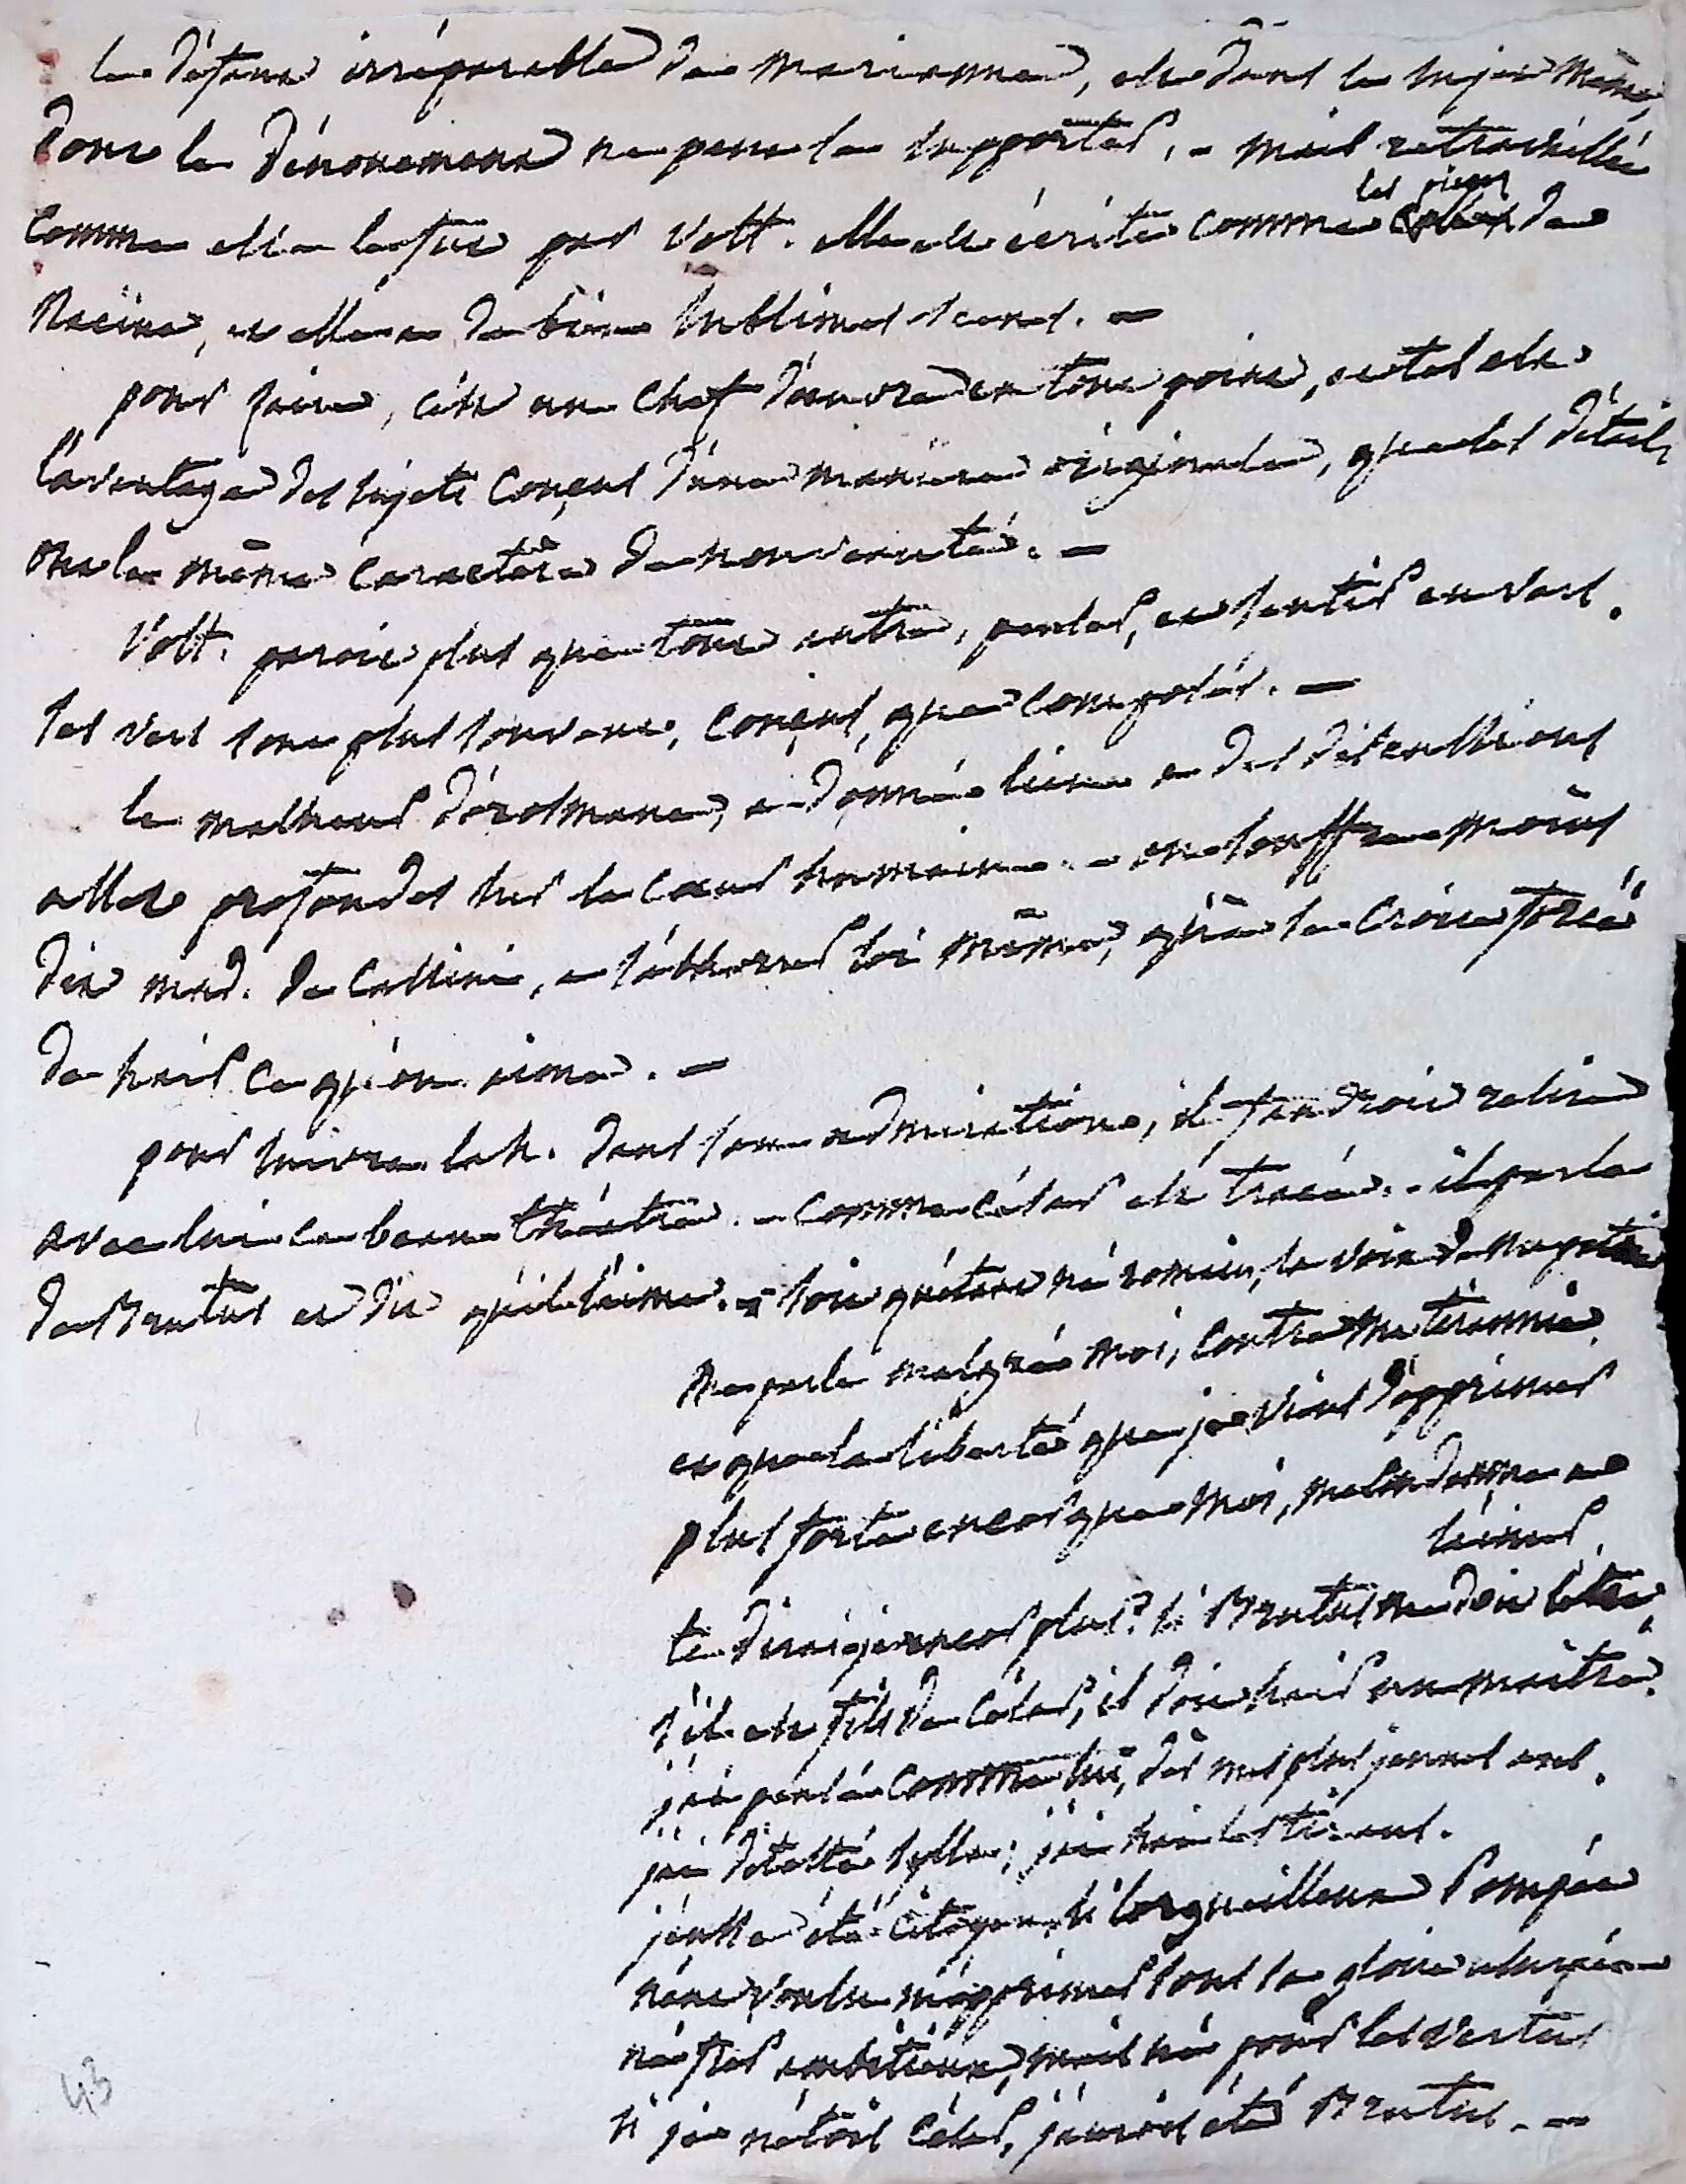 le défaut irréparable de mariamne, est dans le sujet même,
dont le dénouement ne peut se supporter, - mais retravaillée
comme elle la fut par Volt. elle est écrite comme les pièces de
Racine, et elle a de bien sublimes scenes. -
pour Zaire, c'est un chef d'œuvre en tout point, et tel est
l'avantage des sujets conçus d'une manière originale, que les détails
ont le même caractère de nouveauté. -
Volt. paroit plus que tout autre, penser, et sentir en vers.
ses vers sont plus souvent, conçus, que composés. -
le malheur d'orosmane, a donné lieu a des discussions
assez profondes sur le cœur humain. - on souffre moins
dit mad. de Cassini, a s'abhorrer soi même, qu'a se croire forcé
de haïr ce qu'on aime. -
pour suivre lah. dans son admiration, il faudroit relire
avec lui ce beau théatre. - comme César est tracé. - il parle
de Brutus et dit qu'il l'aime. - soit qu'étant né romain, la voix de ma patrie
me parle malgré moi, contre ma tirannie
et que la liberté que je viens d'opprimer
plus forte encor que moi, me condamne a
l'aimer.
te dirai je encor plus? si Brutus me doit l'être,
s'il est fils de César, il doit haïr un maître.
j'ai pensé comme lui, dès mes plus jeunes ans.
j'ai detesté sylla; j'ai hai les tirans.
j'eusse été citoyen, si l'orgueilleux Pompée
n'eut voulu m'opprimer sous sa gloire usurpée
né fier ambitieux, mais né pour les vertus
si je n'étois César, j'aurois été Brutus. -
43